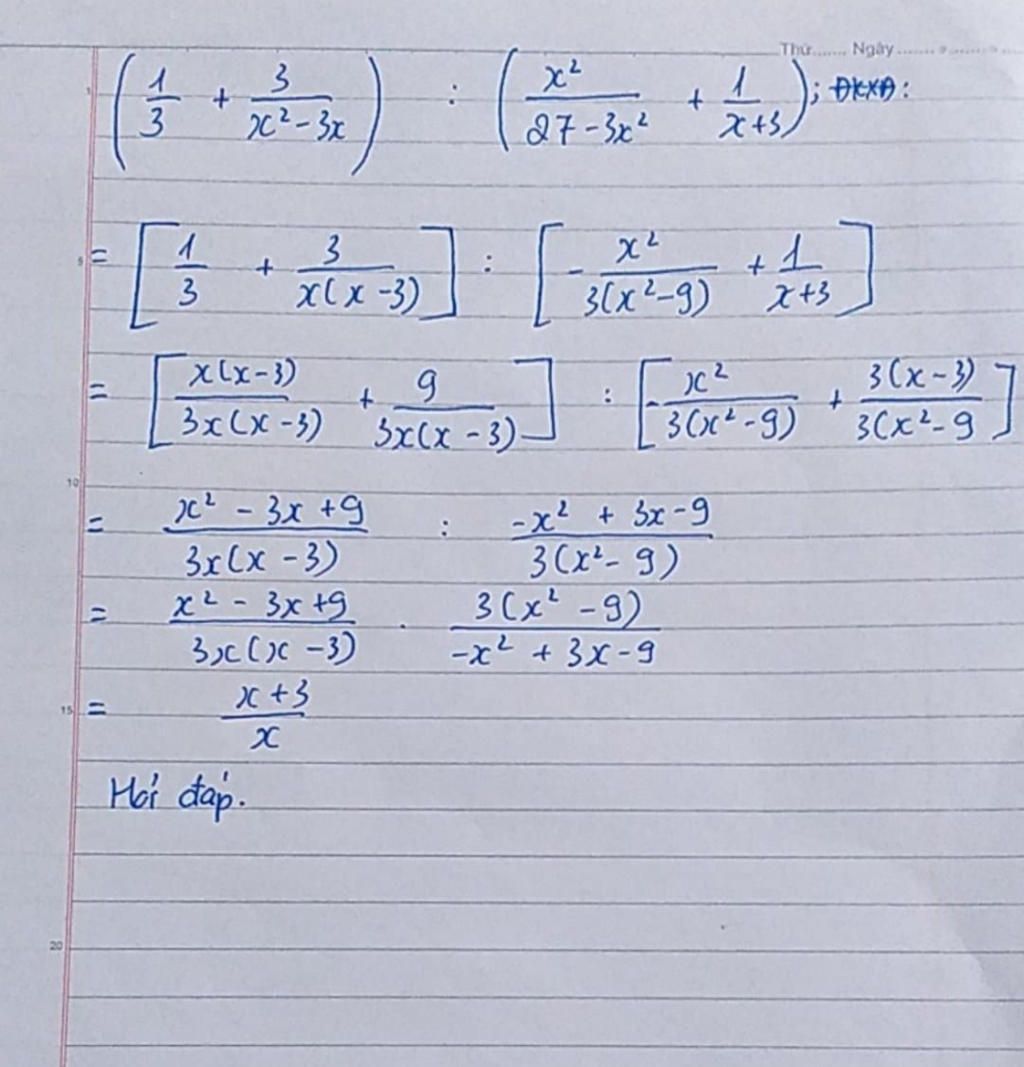 Thứ...... Ngày.............
(1/3 + 3/(x² - 3x)) : (x²/(27 - 3x²) + 1/(x+3)); ĐKXĐ:
5 = [1/3 + 3/(x(x - 3))] : [-x²/(3(x² - 9)) + 1/(x+3)]
= [x(x-3)/(3x(x - 3)) + 9/(3x(x - 3))] : [-x²/(3(x² - 9)) + 3(x - 3)/(3(x² - 9]
10
= (x² - 3x + 9)/(3x(x - 3)) : (-x² + 3x - 9)/(3(x² - 9))
= (x² - 3x + 9)/(3x(x - 3)) . 3(x² - 9)/(-x² + 3x - 9)
15 = (x + 3)/x
Hỏi đáp.
20